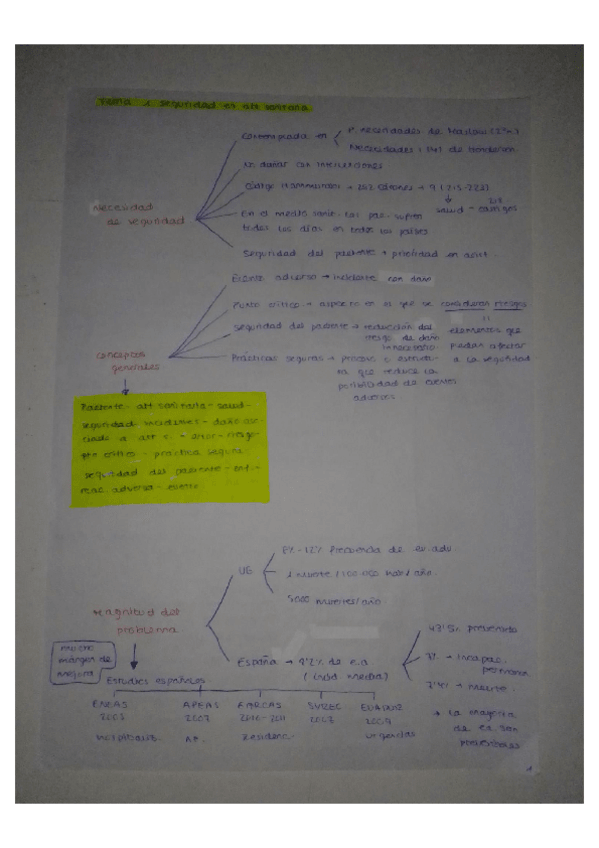 Tema : seguridad en att sanitaria
Contemplada en
P. necesidades de Maslow (2º n.)
Necesidades: de Henderson
No dañar con intervenciones
Necesidad
de seguridad
Código 9 (215-223)
salud - cargos
En el medio sanit. los pac. sufren
todos los días en todos los países
Seguridad del paciente → prioridad en asist.
Evento adverso → incidente con daño
Punto crítico → aspecto en el que se consideran riesgos
Seguridad del paciente → reducción del
riesgo de daño
innecesario.
elementos que
puedan afectar
a la seguridad
Conceptos
generales
Prácticas seguras → proceso o estructu-
ra que reduce la
posibilidad de eventos
adversos
Paciente - att sanitaria - salud -
seguridad - incidentes - daño aso-
ciado a att s. - error - riesgo -
pto crítico - práctica segura -
seguridad del paciente - enf. -
reac. adversa - evento
UE
8% - 12% frecuencia de ev. adv.
1 muerte / 100.000 hab / año
5000 muertes / año
Magnitud del
problema
España → 9'2% de e.a
43'5% prevenible
3% → incapac.
permanen.
→ muerte
→ La mayoría
de ea son
prevenibles
mucho
margen de
mejora
Estudios españoles
ENEAS APEAS EARCAS SYREC EVADUR
2007
2010-2011
2007
2009
AP.
Residenc.
Urgencias